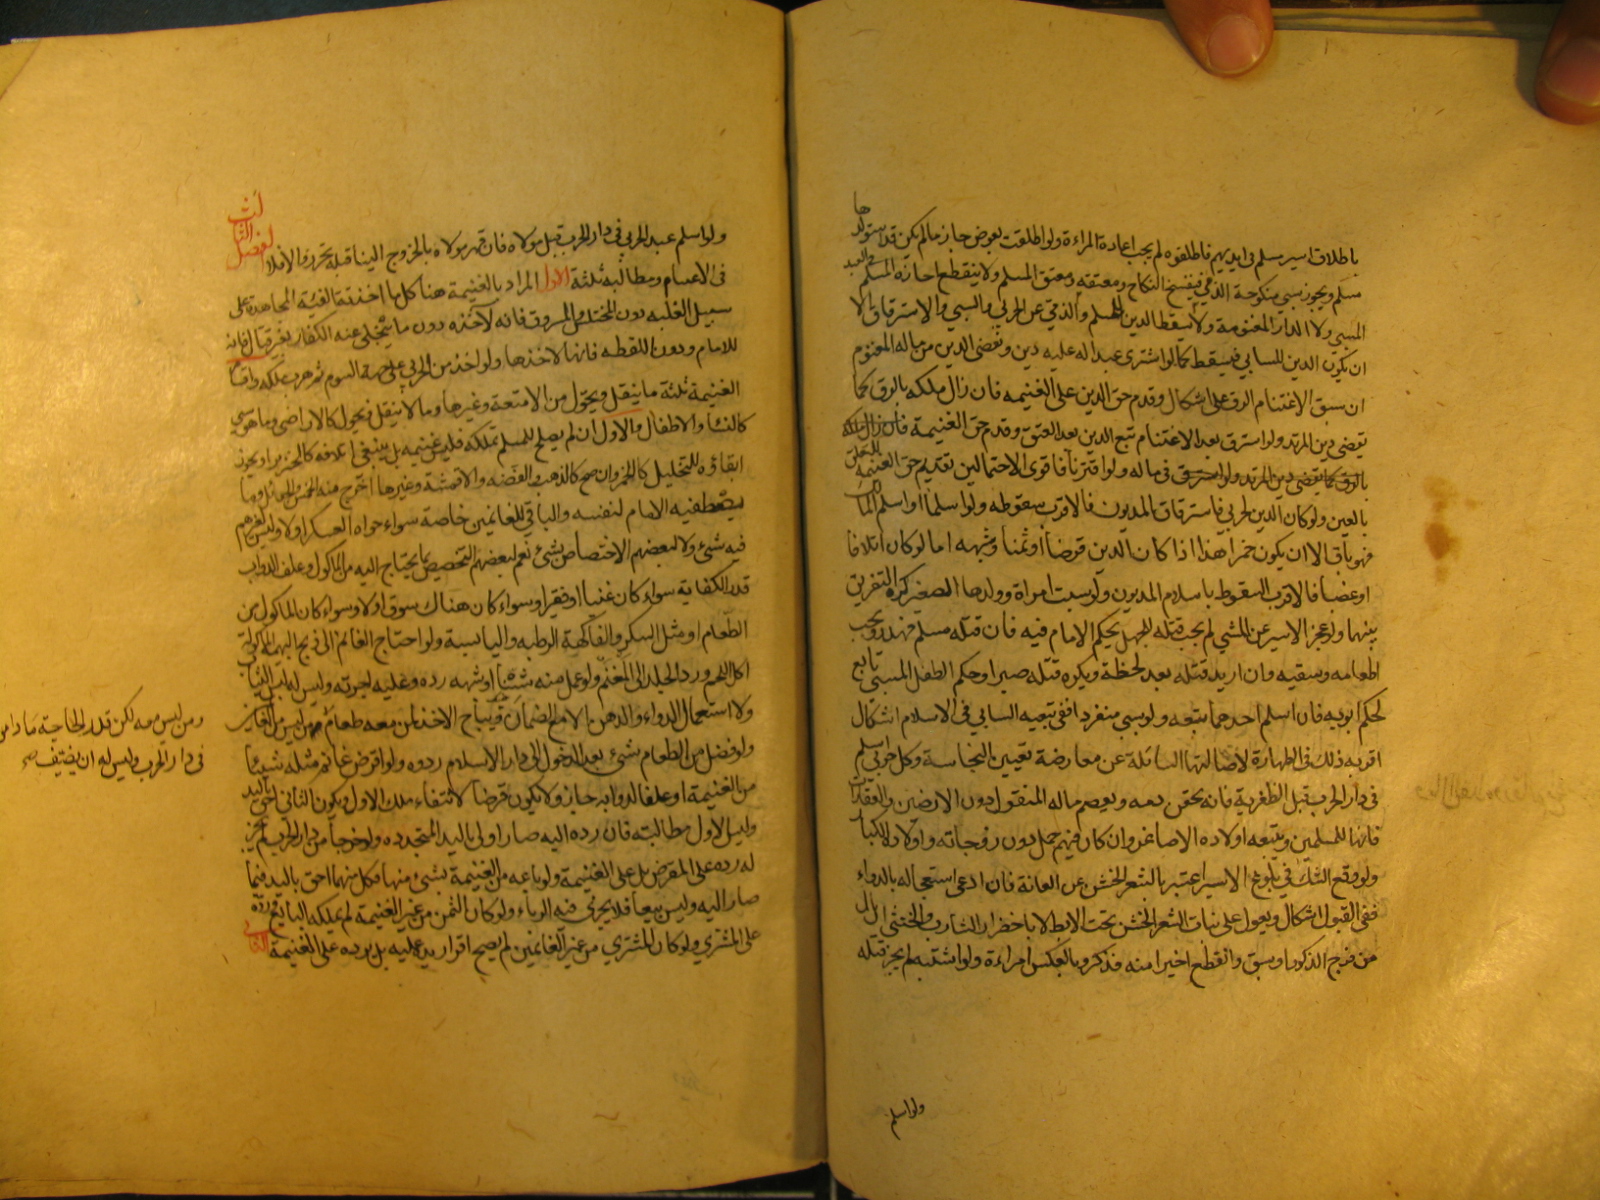 باطلاق اسير مسلم فى ايديهم فاطلقوه لم يجب اعادة المراءة ولو اطلقت بعوض جاز مالم يكن قد استولدها
مسلم ويجوز سبي منكوحة الذمي فينفسخ النكاح ومعتقه ومعتق المسلم ولا ينقطع اجارة المسلم في العبد
المسبى ولا الدار المغنومة ولا يسقط الدين للمسلم والذمي عن الحربي والسبي والاسترقاق الا
ان يكون الدين للسابي فيسقط كما لو اشترى عبدا له عليه دين ونقضى الدين من ماله المغنوم
ان سبق الاغتنام الرق على اشكال وقدم حق الدين على الغنيمه فان زال ملكه بالرق كما
يقضى دين المرتد ولو استرق بعد الاغتنام تبع الدين بعد العتق وقدم حق الغنيمة فان زال ملكه
بالرق كما يقضى دين المرتد ولو استرق فى ماله ولو اقترنا فاقوى الاحتمالين تقديم حق الغنيمة للتعلق
بالعين ولو كان الدين لحربي فاسترقاق المديون فالاقرب سقوطه ولو اسلما او اسلم المالك
فهو باق الا ان يكون خمرا هذا اذا كان الدين قرضا او ثمنا وشبهه اما لو كان اتلافا
او غصبا فالاقرب السقوط باسلام المديون ولو سبت امراة وولدها الصغير كره التفريق
بينهما ولو عجز الاسير عن المشي لم يجب قتله للجهل بحكم الامام فيه فان قتله مسلم فهدر ويجب
اطعامه وسقيه وان اريد قتله بعد لحظة ويكره قتله صبرا وحكم الطفل المسبى تابع
لحكم ابويه فان اسلم احدهما تبعه ولو سبي منفردا ففى تبعيه السابي فى الاسلام اشكال
اقربه ذلك فى الطهارة لاصالتها السالمة عن معارضة تعيين النجاسة وكل حربي اسلم
فى دار الحرب قبل الظفر به فانه يحقن دمه ويعصم ماله المنقول دون الارضين والعقارات
فانها للمسلمين ويتبعه اولاده الاصاغر وان كان فيهم حمل دون زوجاته واولاده الكبار
ولو وقع الشك في بلوغ الاسير اعتبر بالشعر الخشن على العانة فان ادعى استعجاله بالدواء
ففى القبول اشكال ويعول على نبات الشعر الخشن تحت الابط لا باخضرار الشارب والخنثى ان بال
من فرج الذكور او سبق وانقطع اخيرا منه فذكر وبالعكس امراءة ولو اشتبه لم يجز قتله
ولو اسلم
ولو اسلم عبد الحربي فى دار الحرب قبل مولاه فان قهر مولاه بالخروج الينا قبله تحرر والا فلا الفصل الثالث
فى الاغتنام ومطالبه ثلثة الاول المراد بالغنيمة هنا كل ما اخذته الفئة المجاهدة على
سبيل الغلبه دون المختلس والمسروق فانه لآخذه دون ما ينجلى عنه الكفار بغير قتال فانه
للامام ودون اللقطه فانها لاخذها ولو اخذ من الحربي على جهة السوم ثم هرب ملكه واقسام
الغنيمة ثلثة ما ينقل ويحول من الامتعة وغيرها وما لا ينقل و يحول كالاراضى وما هو سبي
كالنساء والاطفال والاول ان لم يصلح للمسلم تملكه فليس غنيمه بل ينبغى اتلافه كالخنزير او يجوز
ابقاؤه للتخليل كالخمر وان صح كالذهب والفضه والاقمشة وغيرها اخرج منه الخمس والجعائل وما
يصطفيه الامام لنفسه والباقي للغانمين خاصة سواء حواه العسكر اولا وليس لغيرهم
فيه شىء ولا لبعضهم الاختصاص بشىء نعم لبعضهم التخصيص بما يحتاج اليه من المأكول وعلف الدواب
قدر الكفاية سواء كان غنيا او فقيرا وسواء كان هناك سوق اولا وسواء كان المأكول من
الطعام او مثل السكر والفاكهة الرطبه واليابسة ولو احتاج الغانم الى ذبح البهائم المأكولة
اكل اللحم ورد الجلد الى المغنم ولو عمل منه شيئا او شبهه رده وعليه اجرته وليس له لبس الثياب
ولا استعمال الدواء والدهن الا مع الضمان ويباح الاخذ لمن معه طعام ومن ليس من الغانمين
ومن ليس معه لكن قدر الحاجة ما دام
فى دار الحرب وليس له ان يضيف صح
ولو فضل من الطعام شىء بعد الدخول الى دار الاسلام ردوه ولو اقرض غانم مثله شيئا
من الغنيمة او علفا لدوابه جاز ولا يكون قرضا لانتفاء ملك الاول ويكون الثانى احق باليد
وليس للاول مطالبته فان رده اليه صار اولى باليد المتجدده ولو خرجا من دار الحرب لم يجز
له رده على المقرض بل على الغنيمة ولو باعه من الغنيمة بشىء منها فكل منهما احق باليد فيما
صار اليه وليس بيعا فلا يجرى فيه الرباء ولو كان الثمن من غير الغنيمة لم يملكه البايع ورده
على المشترى ولو كان المشترى من غير الغانمين لم يصح اقرار يده عليه بل يرده على الغنيمة الثانى